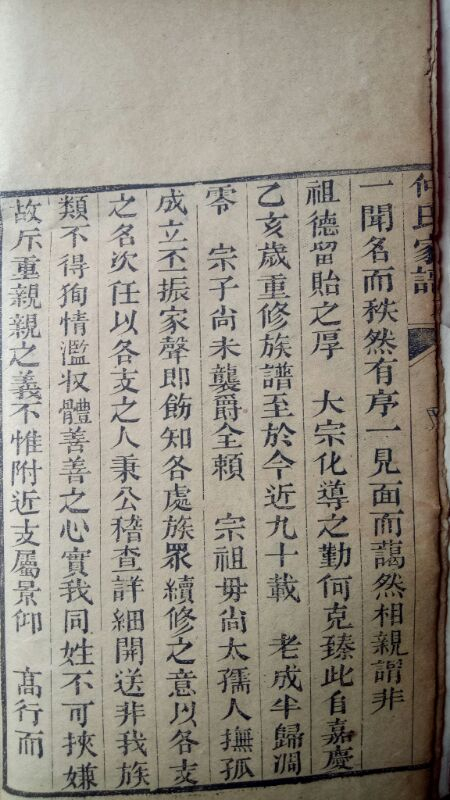 仲氏家譜
一聞名而秩然有序一見面而藹然相親謂非
祖德留貽之厚　大宗化導之勤何克臻此自嘉慶
乙亥歲重修族譜至於今近九十載　老成半歸凋
零　宗子尚未襲爵全賴　宗祖毋尚太孺人撫孤
成立丕振家聲即飭知各處族眾續修之意以各支
之名次任以各支之人秉公稽查詳細開送非我族
類不得狥情濫収體善善之心實我同姓不可挾嫌
故斥重親親之義不惟附近支屬景仰　高行而